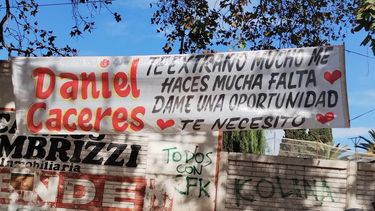 Daniel
Caceres
TE EXTRAÑO MUCHO ME
HACES MUCHA FALTA
DAME UNA OPORTUNIDAD
TE NECESITO
MBRIZZI
Inmobiliaria
ENDE
TODOS
CON
FK
KOLINA